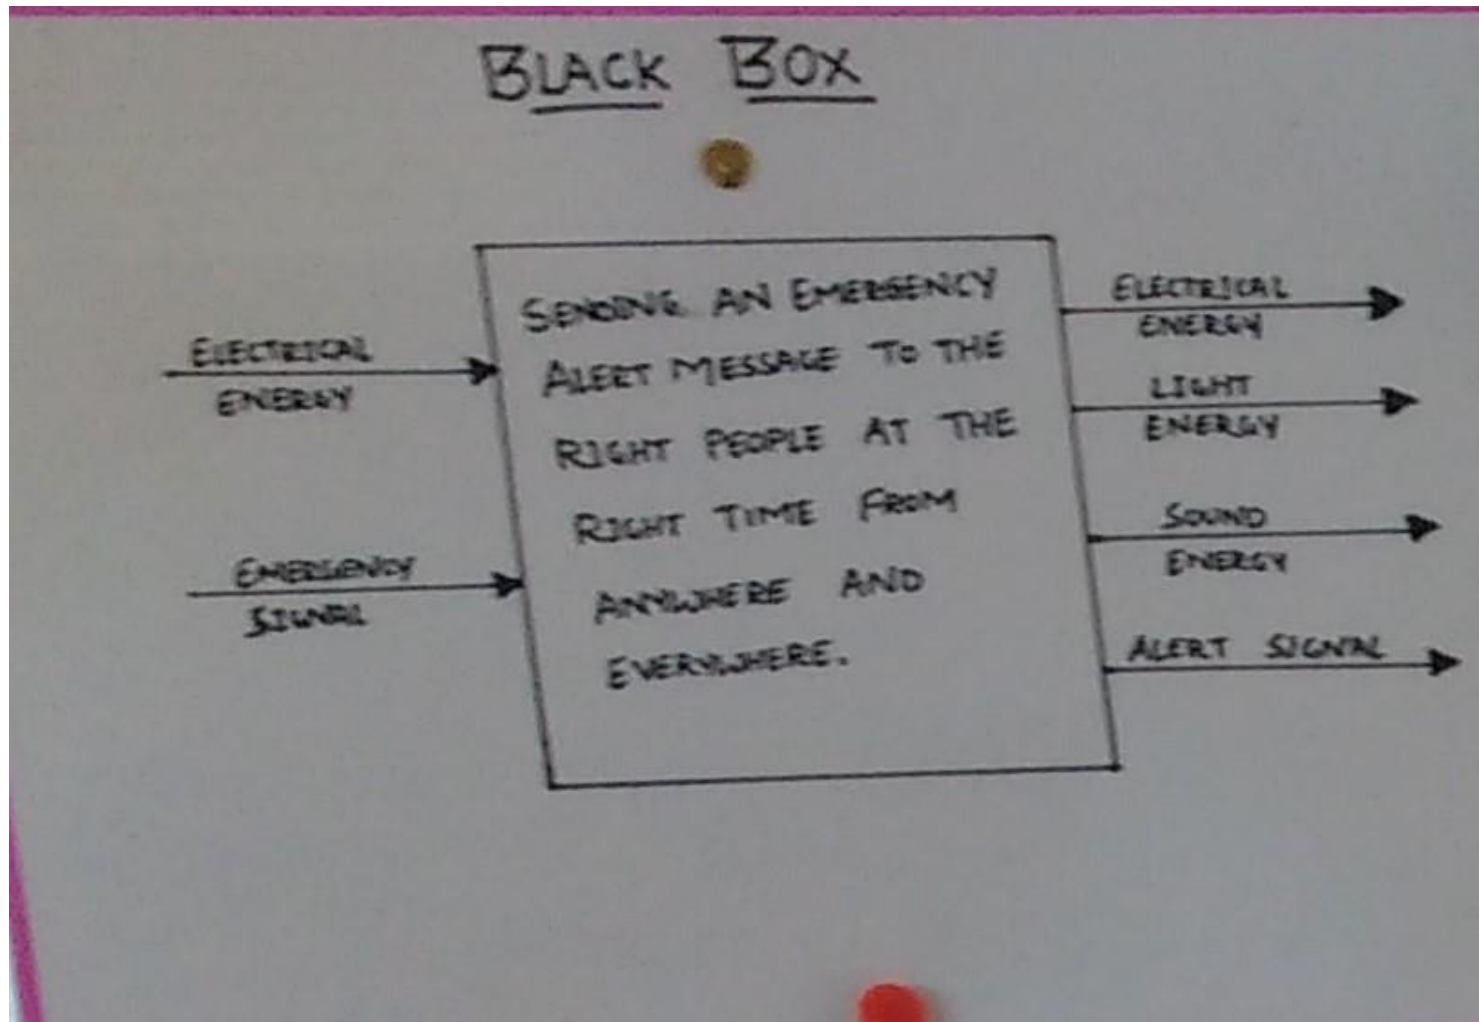 BLACK BOX
ELECTRICAL
ENERGY
EMERGENCY
SIGNAL
SENDING AN EMERGENCY
ALERT MESSAGE TO THE
RIGHT PEOPLE AT THE
RIGHT TIME FROM
ANYWHERE AND
EVERYWHERE.
ELECTRICAL
ENERGY
LIGHT
ENERGY
SOUND
ENERGY
ALERT SIGNAL